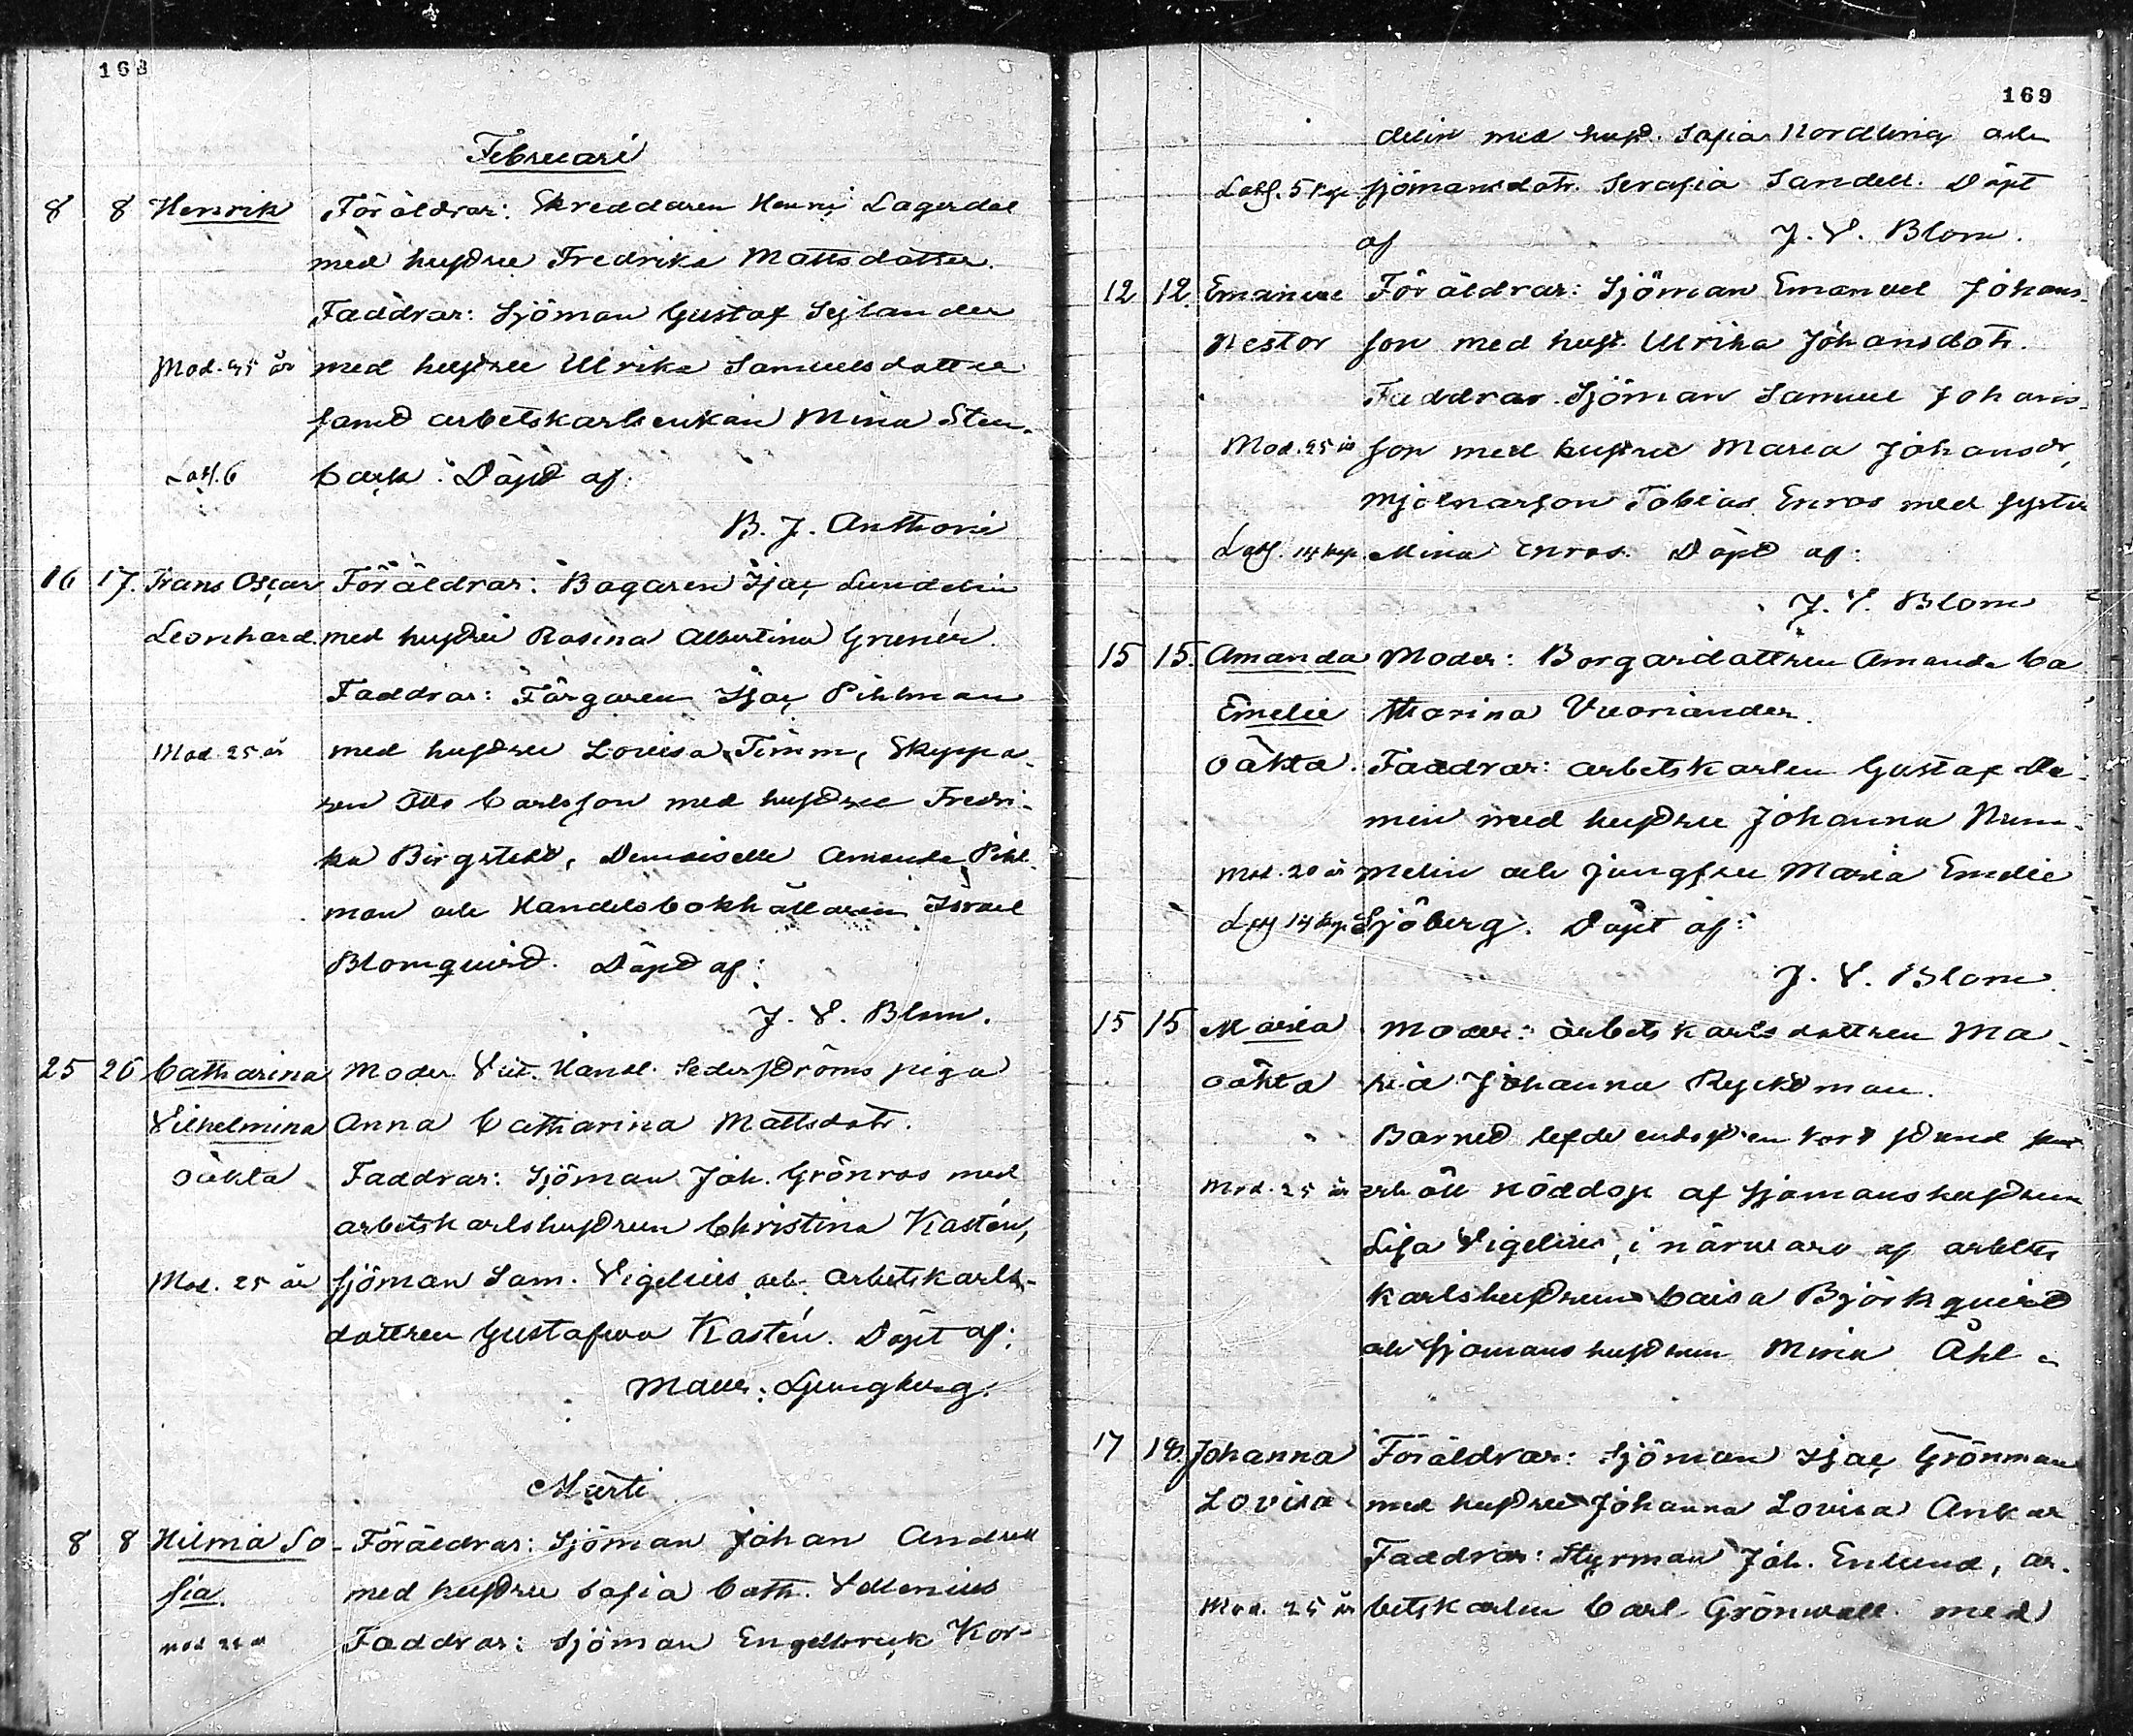 168
Februari
8 8 Henrik Föräldrar: Skreddaren Henric Lagerdal
med hustru Fredrika Mattsdotter.
Faddrar: Sjöman Gustaf Sylander
Mod. 35 år med hustru Ulrika Samuelsdotter
samt arbetskarlsenkan Mina Sten-
back. Döpt af:
B. J. Anthoni
16 17. Frans Oscar Föräldrar: Bagaren Isac Lundelin
Leonhard. med hustru Rosina Albertina Grunér.
Faddrar: Färgaren Isac Pihlman
Mod. 25 år med hustru Lovisa Timm, Skeppa-
ren Otto Carlsson med hustru Fredri-
ka Birgstedt, Demoiselle Amanda Pihl-
man och Handelsbokhållaren Israel
Blomquist. Döpt af:
J. V. Blom.
25 26 Catharina Moder Vict. Handl. Sederströms piga
Vilhelmina Anna Catharina Mattsdotr.
oäkta Faddrar: Sjöman Joh. Grönros med
arbetskarlshustrun Christina Kastén,
Mod. 25 år sjöman Sam. Vigelius och arbetskarls-
dottren Gustafva Kastén. Döpt af:
Maur: Ljungberg.
Marti
8 8 Hilma So- Föräldrar: Sjöman Johan Andrell
fia. med hustru Sofia Cath. Vellenius
Faddrar: Sjöman Engelbreck Kor-
169
delin med hust. Sofia Nordling och
sjömansdotr. Serafia Sandell. Döpt
af J. V. Blom.
12 12. Emanuel Föräldrar: Sjöman Emanuel Johans-
Nestor son med hust. Ulrika Johansdotr.
Faddrar Sjöman Samuel Johans-
Mod. 25 år son med hustru Maria Johansdr,
Mjölnarson Tobias Enros med syster
Mina Enros. Döpt af:
J. V. Blom
15 15. Amanda Moder: Borgardottren Amanda Ca
Emelie tharina Vuoriander.
oäkta. Faddrar: arbetskarlen Gustaf De-
min med hustru Johanna Num-
Mod. 20 år melin och jungfru Maria Emelie
Sjöberg. Döpt af:
J. V. Blom
15 15 Maria Moder: arbetskarlsdottren Ma-
oäkta ria Johanna Ryckman.
Barnet lefde endast en kort stund
Mod. 25 år och nöddop af sjömanshustrun
Lisa Vigelius, i närvaro af arbets
karlshustrun Caisa Björkquist
och sjömanshustrun Mina Åhl
17 18. Johanna Föräldrar: Sjöman Isac Grönman
Lovisa med hustru Johanna Lovisa Ankar
Faddrar: Styrman Joh. Enlund, ar-
Mod. 25 år betskarlen Carl Grönwall med